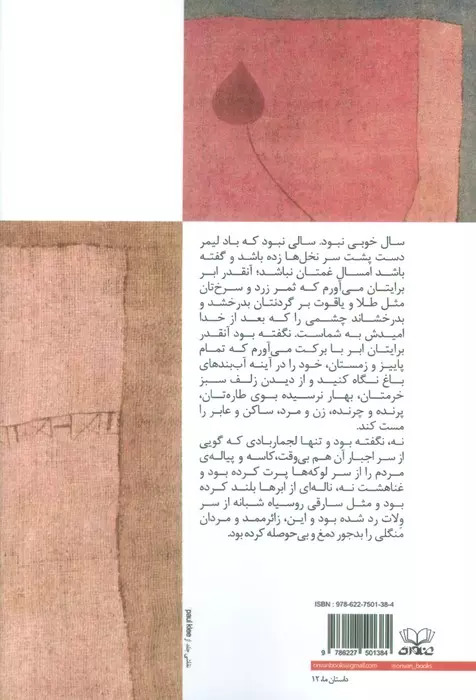 سال خوبی نبود. سالی نبود که باد لیمر
دست پشت سر نخل‌ها زده باشد و گفته
باشد امسال غمتان نباشد؛ آنقدر ابر
برایتان می‌آورم که ثمر زرد و سرخ‌تان
مثل طلا و یاقوت بر گردنتان بدرخشد و
بدرخشاند چشمی را که بعد از خدا
امیدش به شماست. نگفته بود آنقدر
برایتان ابر با برکت می‌آورم که تمام
پاییز و زمستان، خود را در آینه آب‌بندهای
باغ نگاه کنید و از دیدن زلف سبز
خرمتان، بهار نرسیده بوی طاره‌تان،
پرنده و چرنده، زن و مرد، ساکن و عابر را
مست کند.
نه، نگفته بود و تنها لجمار‌بادی که گویی
از سر اجبار آن هم بی‌وقت، کاسه و پیاله‌ی
مردم را از سر لوکه‌ها پرت کرده بود و
غناهشت نه، ناله‌ای از ابرها بلند کرده
بود و مثل سارقی روسیاه شبانه از سر
ولات رد شده بود و این، زائرممد و مردان
منگلی را بدجور دمغ و بی‌حوصله کرده بود.
نقاشی جلد از paul klee
ISBN : 978-622-7501-38-4
9 786227 501384
داستان ما، ۱۲